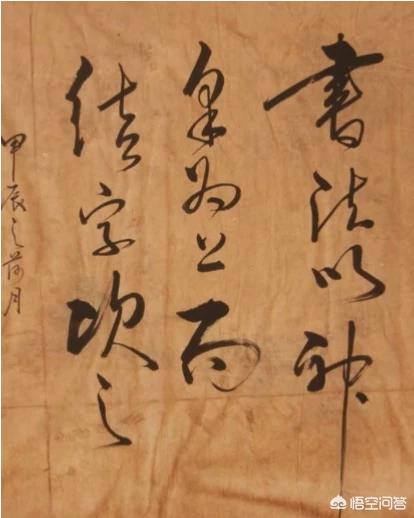 書法以神
采为上而
结字次之
甲辰之荷月
悟空问答